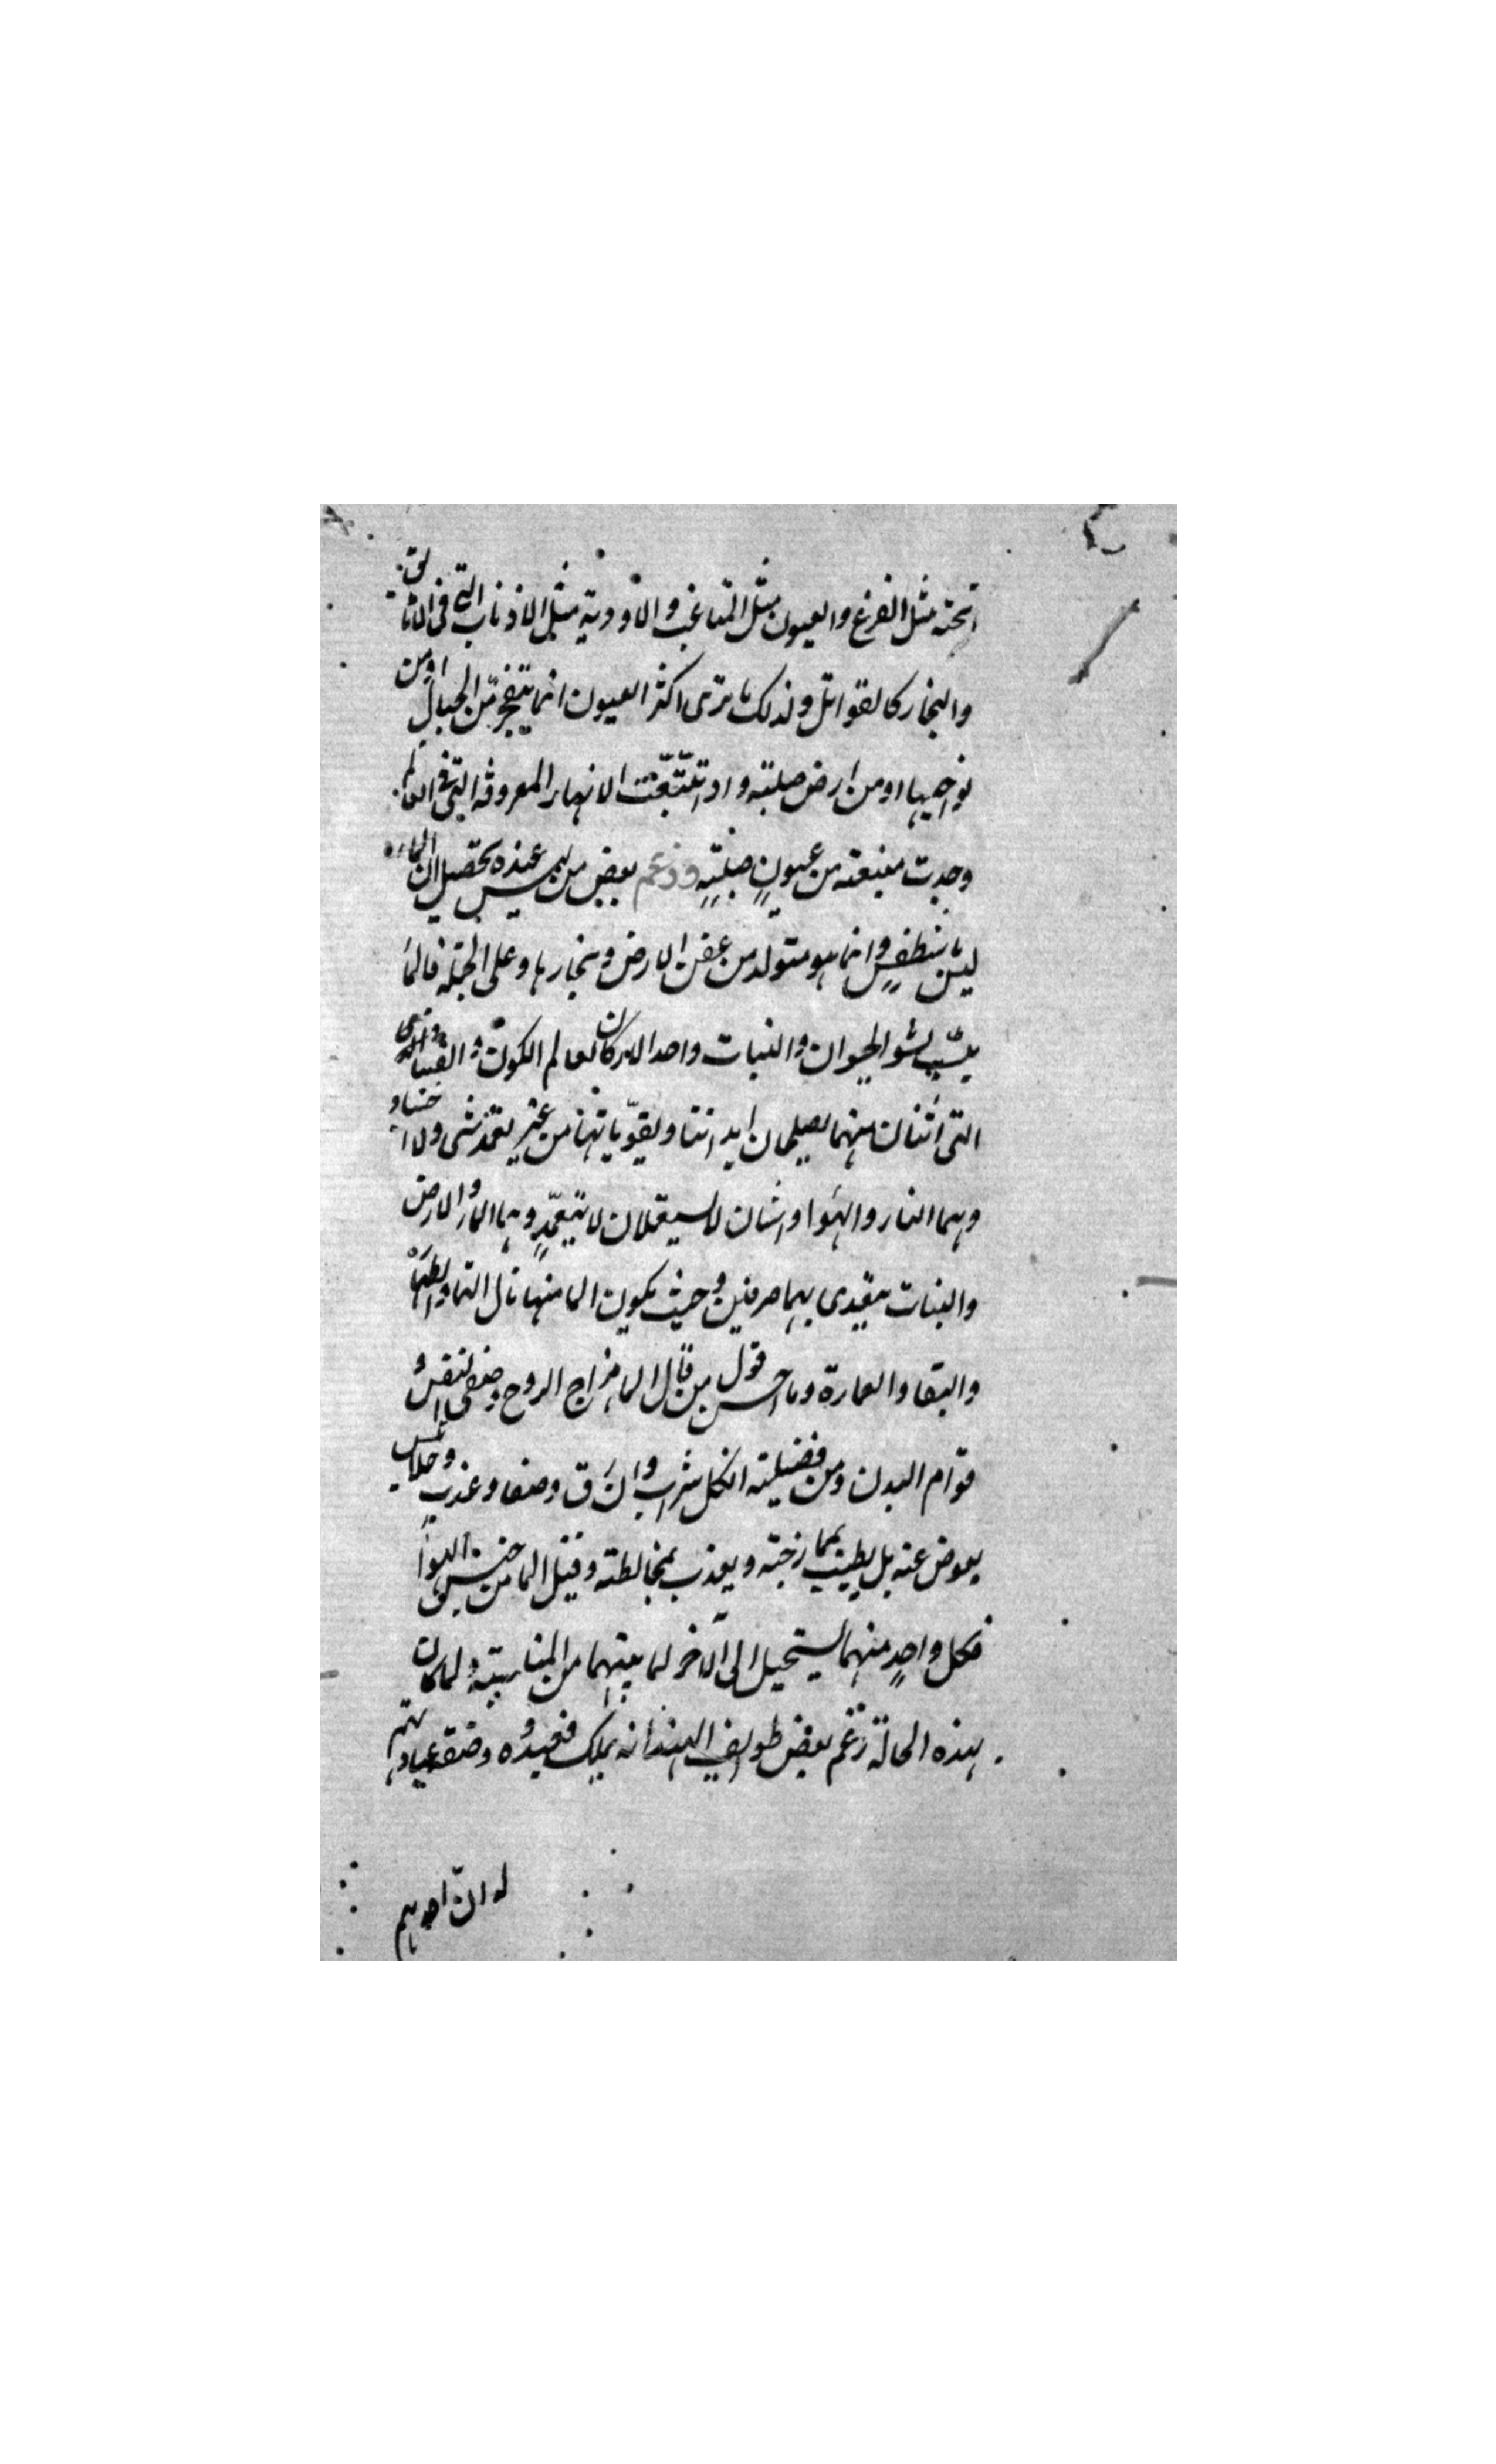 تحته مثل الفرع والعيون مثل المثاعب والاودية مثل الاذناب التى فى الاثا لى
والبخار كالقوابل ولذلك ما ترى اكثر العيون انما يتفجر من الجبال او من
نواحيها او من ارض صلبة واذا تتبعت الانهار المعروفة التى فى العالم
وجدت منبعثة من عيون صلبة وزعم بعض من ليس عنده تحصيل ان الماء
ليس باسطقس وانما هو متولد من عفن الارض وبخارها وعلى الجملة فالما
سبب لنشو الحيوان والنبات واحد الاركان لعالم الكون والفساد
التى اثنان منها يصلحان ابداننا ويقويانها من غير تعمد شى ولا
وهما النار والهوا واثنان لا يستعملان الا بتعمد وهما الما والارض
والنبات يغتدى بهما صرفين وحيث يكون الما منها نال النما والطها
والبقا والعمارة وما احسن قول من قال الما مزاج الروح وصفى النفس و
قوام البدن ومن فضيلته ان كل شراب وان رق وصفا وعذب وحلا ليس
يعوض عنه بل يطيب بممازجته ويعذب بمخالطته وقيل الما من جنس الهوا
فكل واحد منهما يستحيل الى الآخر لما بينهما من المناسبة ولما كان
بهذه الحالة زعم بعض طوايف الهند انه ملك فعبدوه وصفة عبادتهم
له ان احدهم